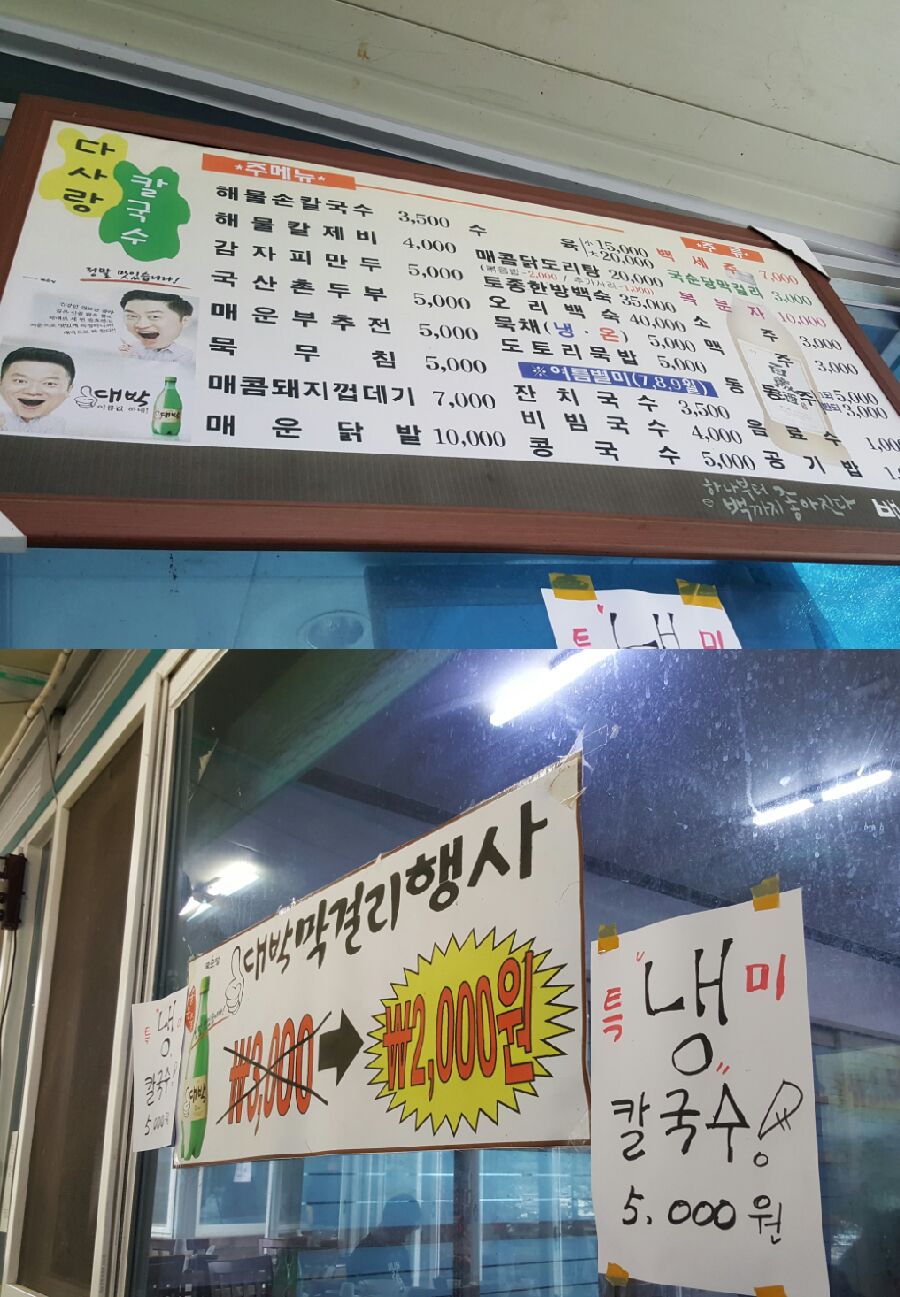 다사랑
칼국수
정말 맛있습니다!
대박
*주메뉴*
해물손칼국수 3,500
해물칼제비 4,000
감자피만두 5,000
국산촌두부 5,000
매운부추전 5,000
묵무침 5,000
매콤돼지껍데기 7,000
매운닭발 10,000
수육 소15,000 대20,000
매콤닭도리탕 20,000
(볶음밥-2,000 / 추가사리-1,000)
토종한방백숙 35,000
오리백숙 40,000
묵채(냉·온) 5,000
도토리묵밥 5,000
※여름별미(7,8,9월)
잔치국수 3,500
비빔국수 4,000
콩국수 5,000
주류
백세주 7,000
국순당막걸리 3,000
복분자 10,000
소주 3,000
맥주 3,000
동동주 5,000
3,000
음료수
공기밥
하나부터
백까지 좋아진다
특 냉 미
대박막걸리행사
대박
₩3,000
₩2,000원
특 "냉" 미
칼국수!
5,000원
특 냉
칼국수!
5,000원